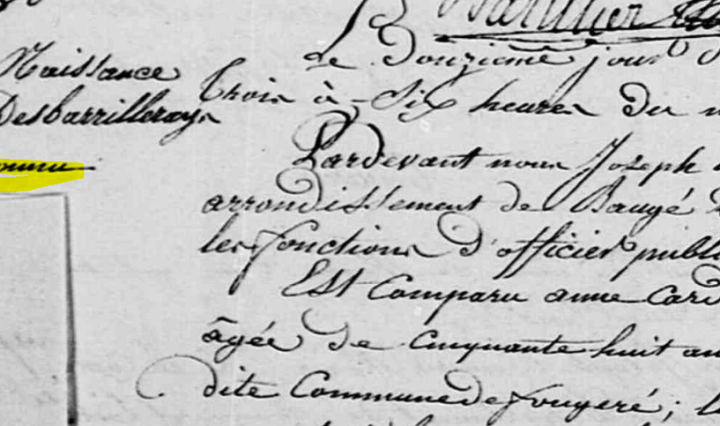 Naissance
Desbarrilleray
Le Douzieme jour
Trois à Six heures du
Pardevant nous Joseph
arrondissement de Baugé
les fonctions d'officier public
Est Comparu anne
âgée de Cinquante huit
dite Commune de fougeré ;